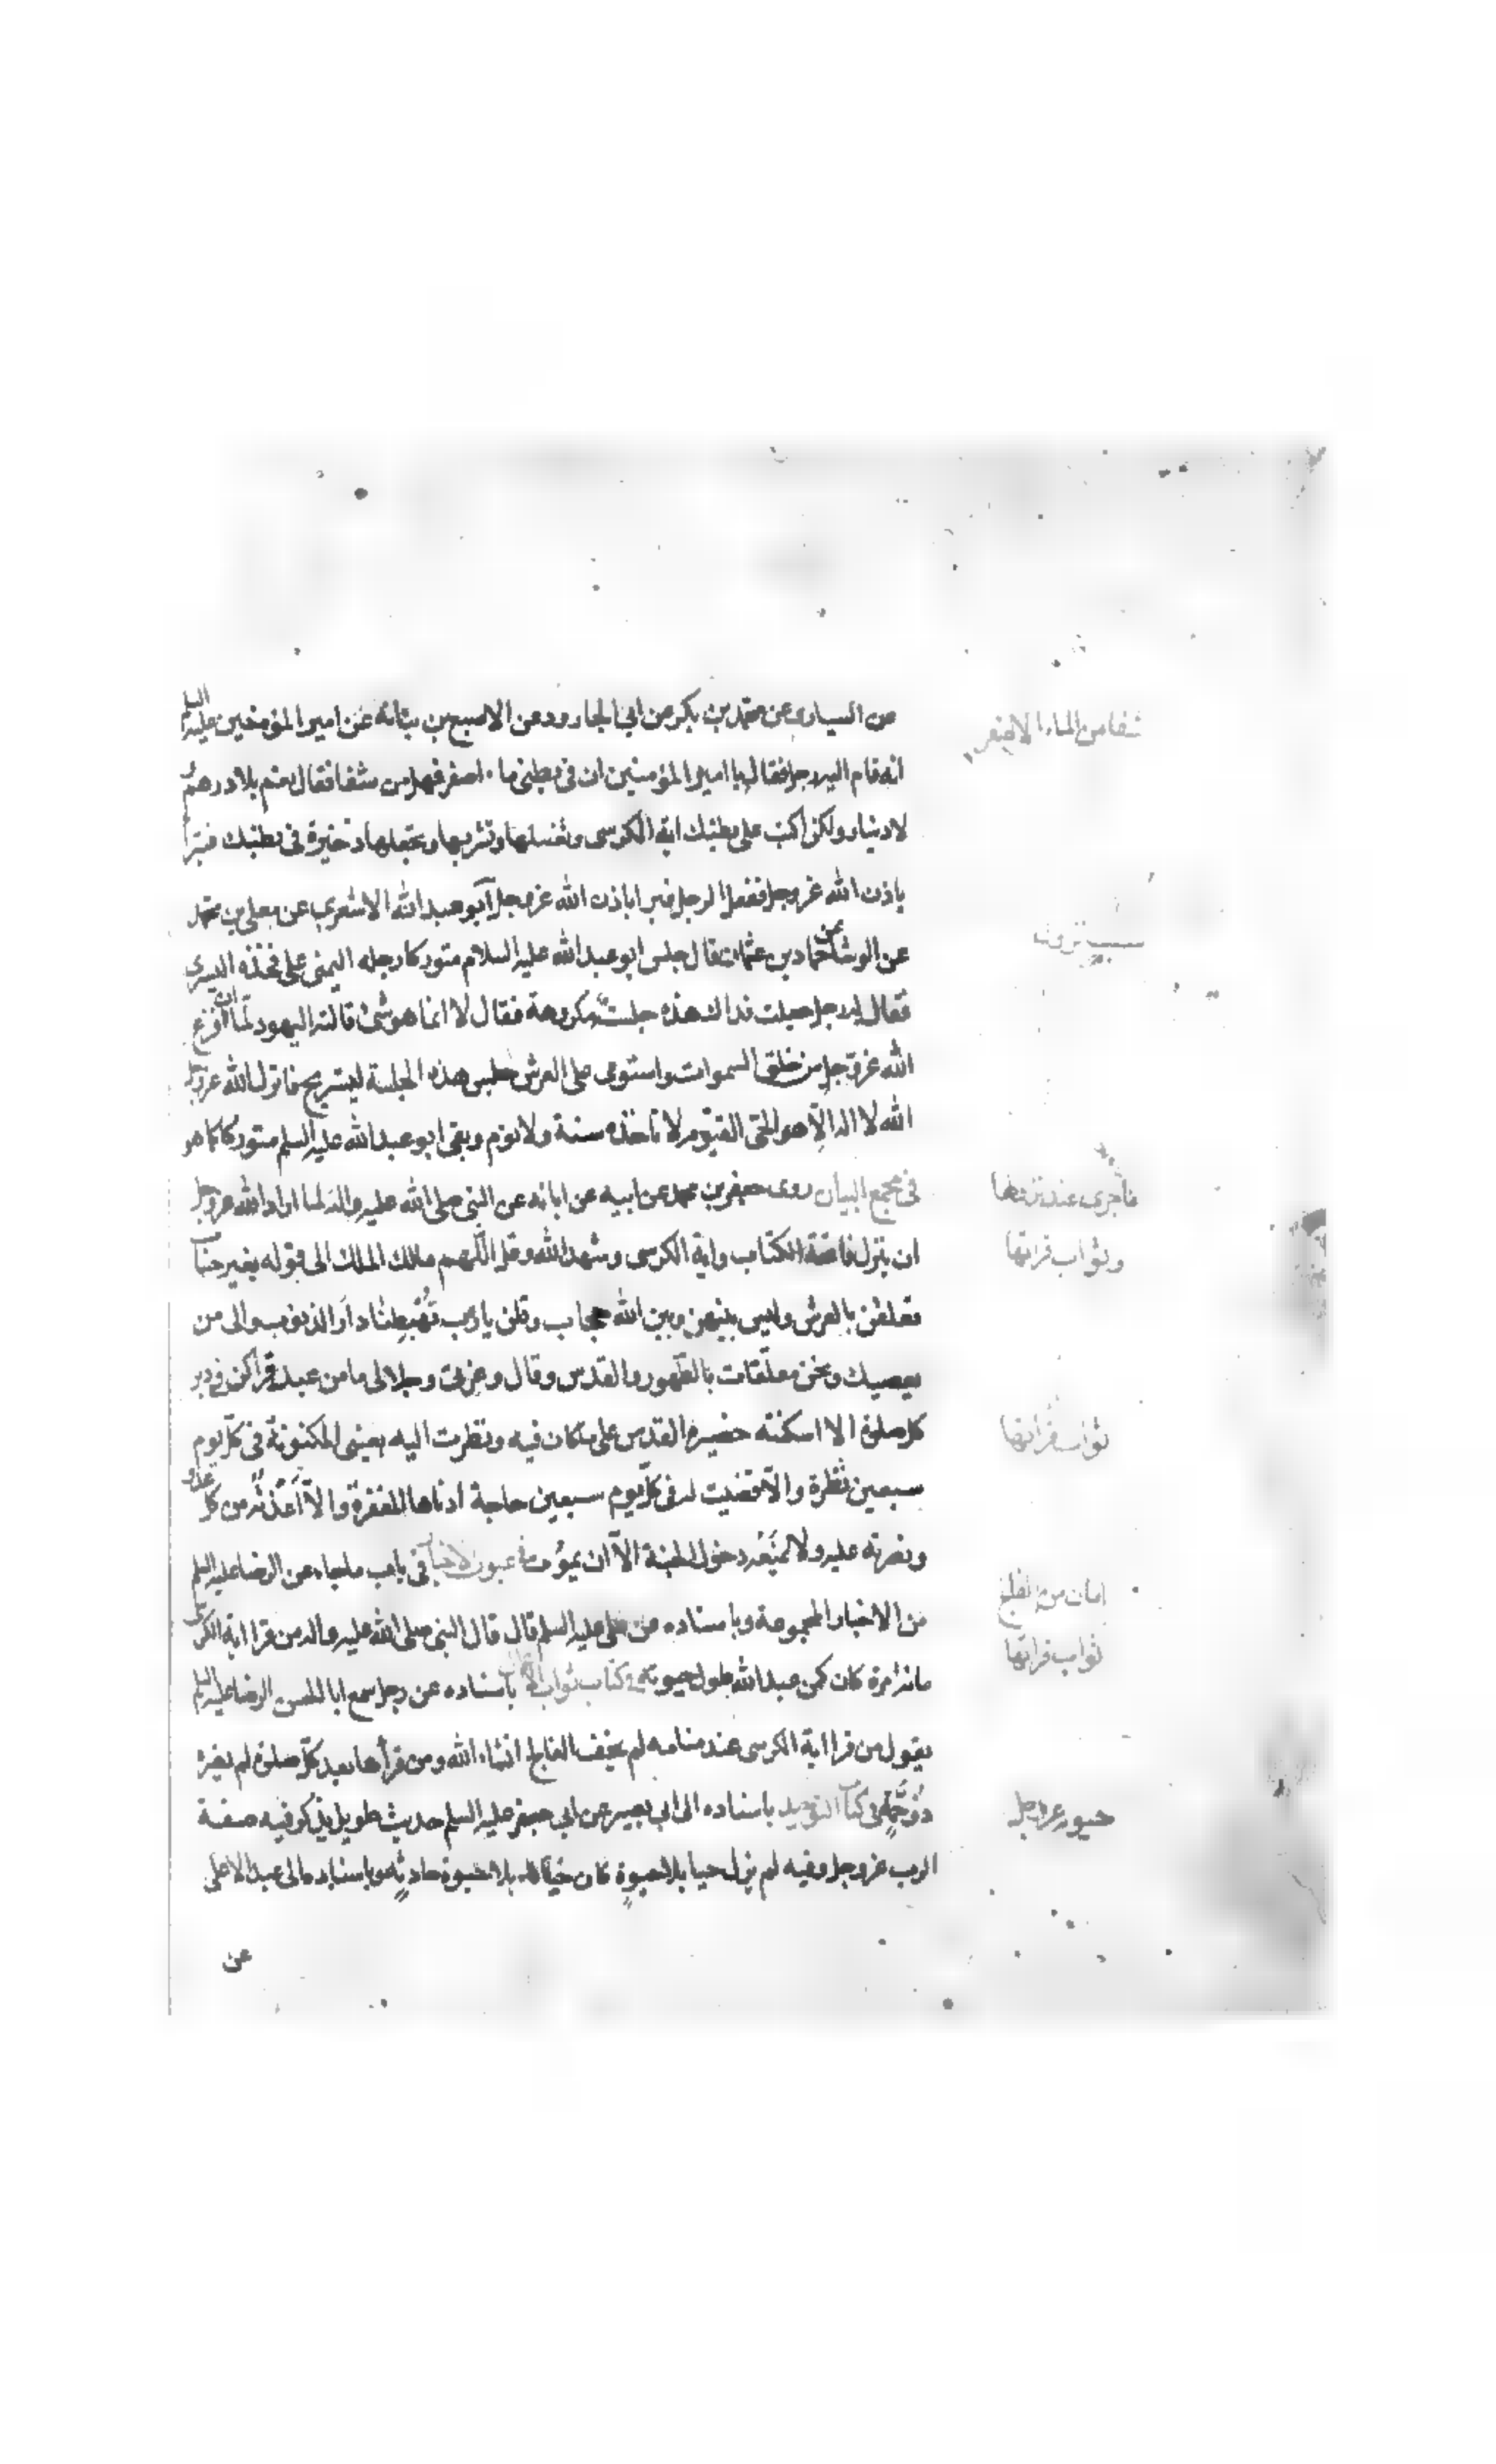 عن السيارى عن محمد بن بكر عن ابى الجارود عن الاصبغ بن نباته عن امير المؤمنين عليه السلم
انه قام اليه رجل فقال يا امير المؤمنين ان فى بطنى ماء اصفر فهل من شفا فقال نعم بلا درهم و
لا دينار ولكن اكتب على بطنك اية الكرسى وتغسلها وتشربها وتجعلها ذخيرة فى بطنك فتبرأ
باذن الله عز وجل ففعل الرجل فبرا باذن الله عز وجل ابو عبد الله الاشعرى عن معلى بن محمد
عن الوشا عن حماد بن عثمان قال جلس ابو عبد الله عليه السلام متوركا رجله اليمنى على فخذه اليسرى
فقال له رجل جعلت فداك هذه جلسة مكروهة فقال لا انما هو شئ قالته اليهود لما ان فرغ
الله عز وجل من خلق السموات واستوى على العرش جلس هذه الجلسة ليستريح فانزل الله عز وجل
الله لا اله الا هو الحى القيوم لا تاخذه سنة ولا نوم وبقى ابو عبد الله عليه السلم متوركا كما هو
فى مجمع البيان روى جعفر بن محمد عن ابيه عن ابائه عن النبى صلى الله عليه واله لما اراد الله عز وجل
ان ينزل فاتحة الكتاب واية الكرسى وشهد الله وقل اللهم مالك الملك الى قوله بغير حساب
تعلقن بالعرش وليس بينهن وبين الله حجاب وقلن يا رب تُهْبِطنا دار الذنوب والى من
يعصيك ونحن معلّقات بالطهور والقدس وقال وعزتى وجلالى ما من عبد قراكن فى دبر
كل صلوة الا اسكنته حضيرة القدس على ما كان فيه ونظرت اليه بعينى المكنونة فى كل يوم
سبعين نظرة والا قضيت له فى كل يوم سبعين حاجة ادناها المغفرة والا اعذته من كل عدو
ونصرته عليه ولا يمنعه دخول الجنة الا ان يموت فى عيون الاخبار فى باب ما جاء عن الرضا عليه السلم
من الاخبار المجموعة وباسناده عن على عليه السلم قال قال النبى صلى الله عليه واله من قرا اية الكرسى
مائة مرة كان كمن عبد الله طول حيوته فى كتاب ثواب الاعمال باسناده عن رجل سمع ابا الحسن الرضا عليه السلم
يقول من قرا اية الكرسى عند منامه لم يخف الفالج انشاء الله ومن قرأها بعد كل صلوة لم يضره
ذو حُمَةٍ فى كتاب التوحيد باسناده الى ابى بصير عن ابى جعفر عليه السلم حديث طويل يذكر فيه صفة
الرب عز وجل وفيه لم يزل حيا بلا حيوةٍ كان حيا بلا حيوة حادثةٍ وباسناده الى عبد الاعلى
عن
شفا من الماء الاصفر
سبب نزوله
ما جرى عند نزولها
وثواب قرائتها
ثواب قرائتها
امان من الفلج
ثواب قرائتها
حيوه عز وجل